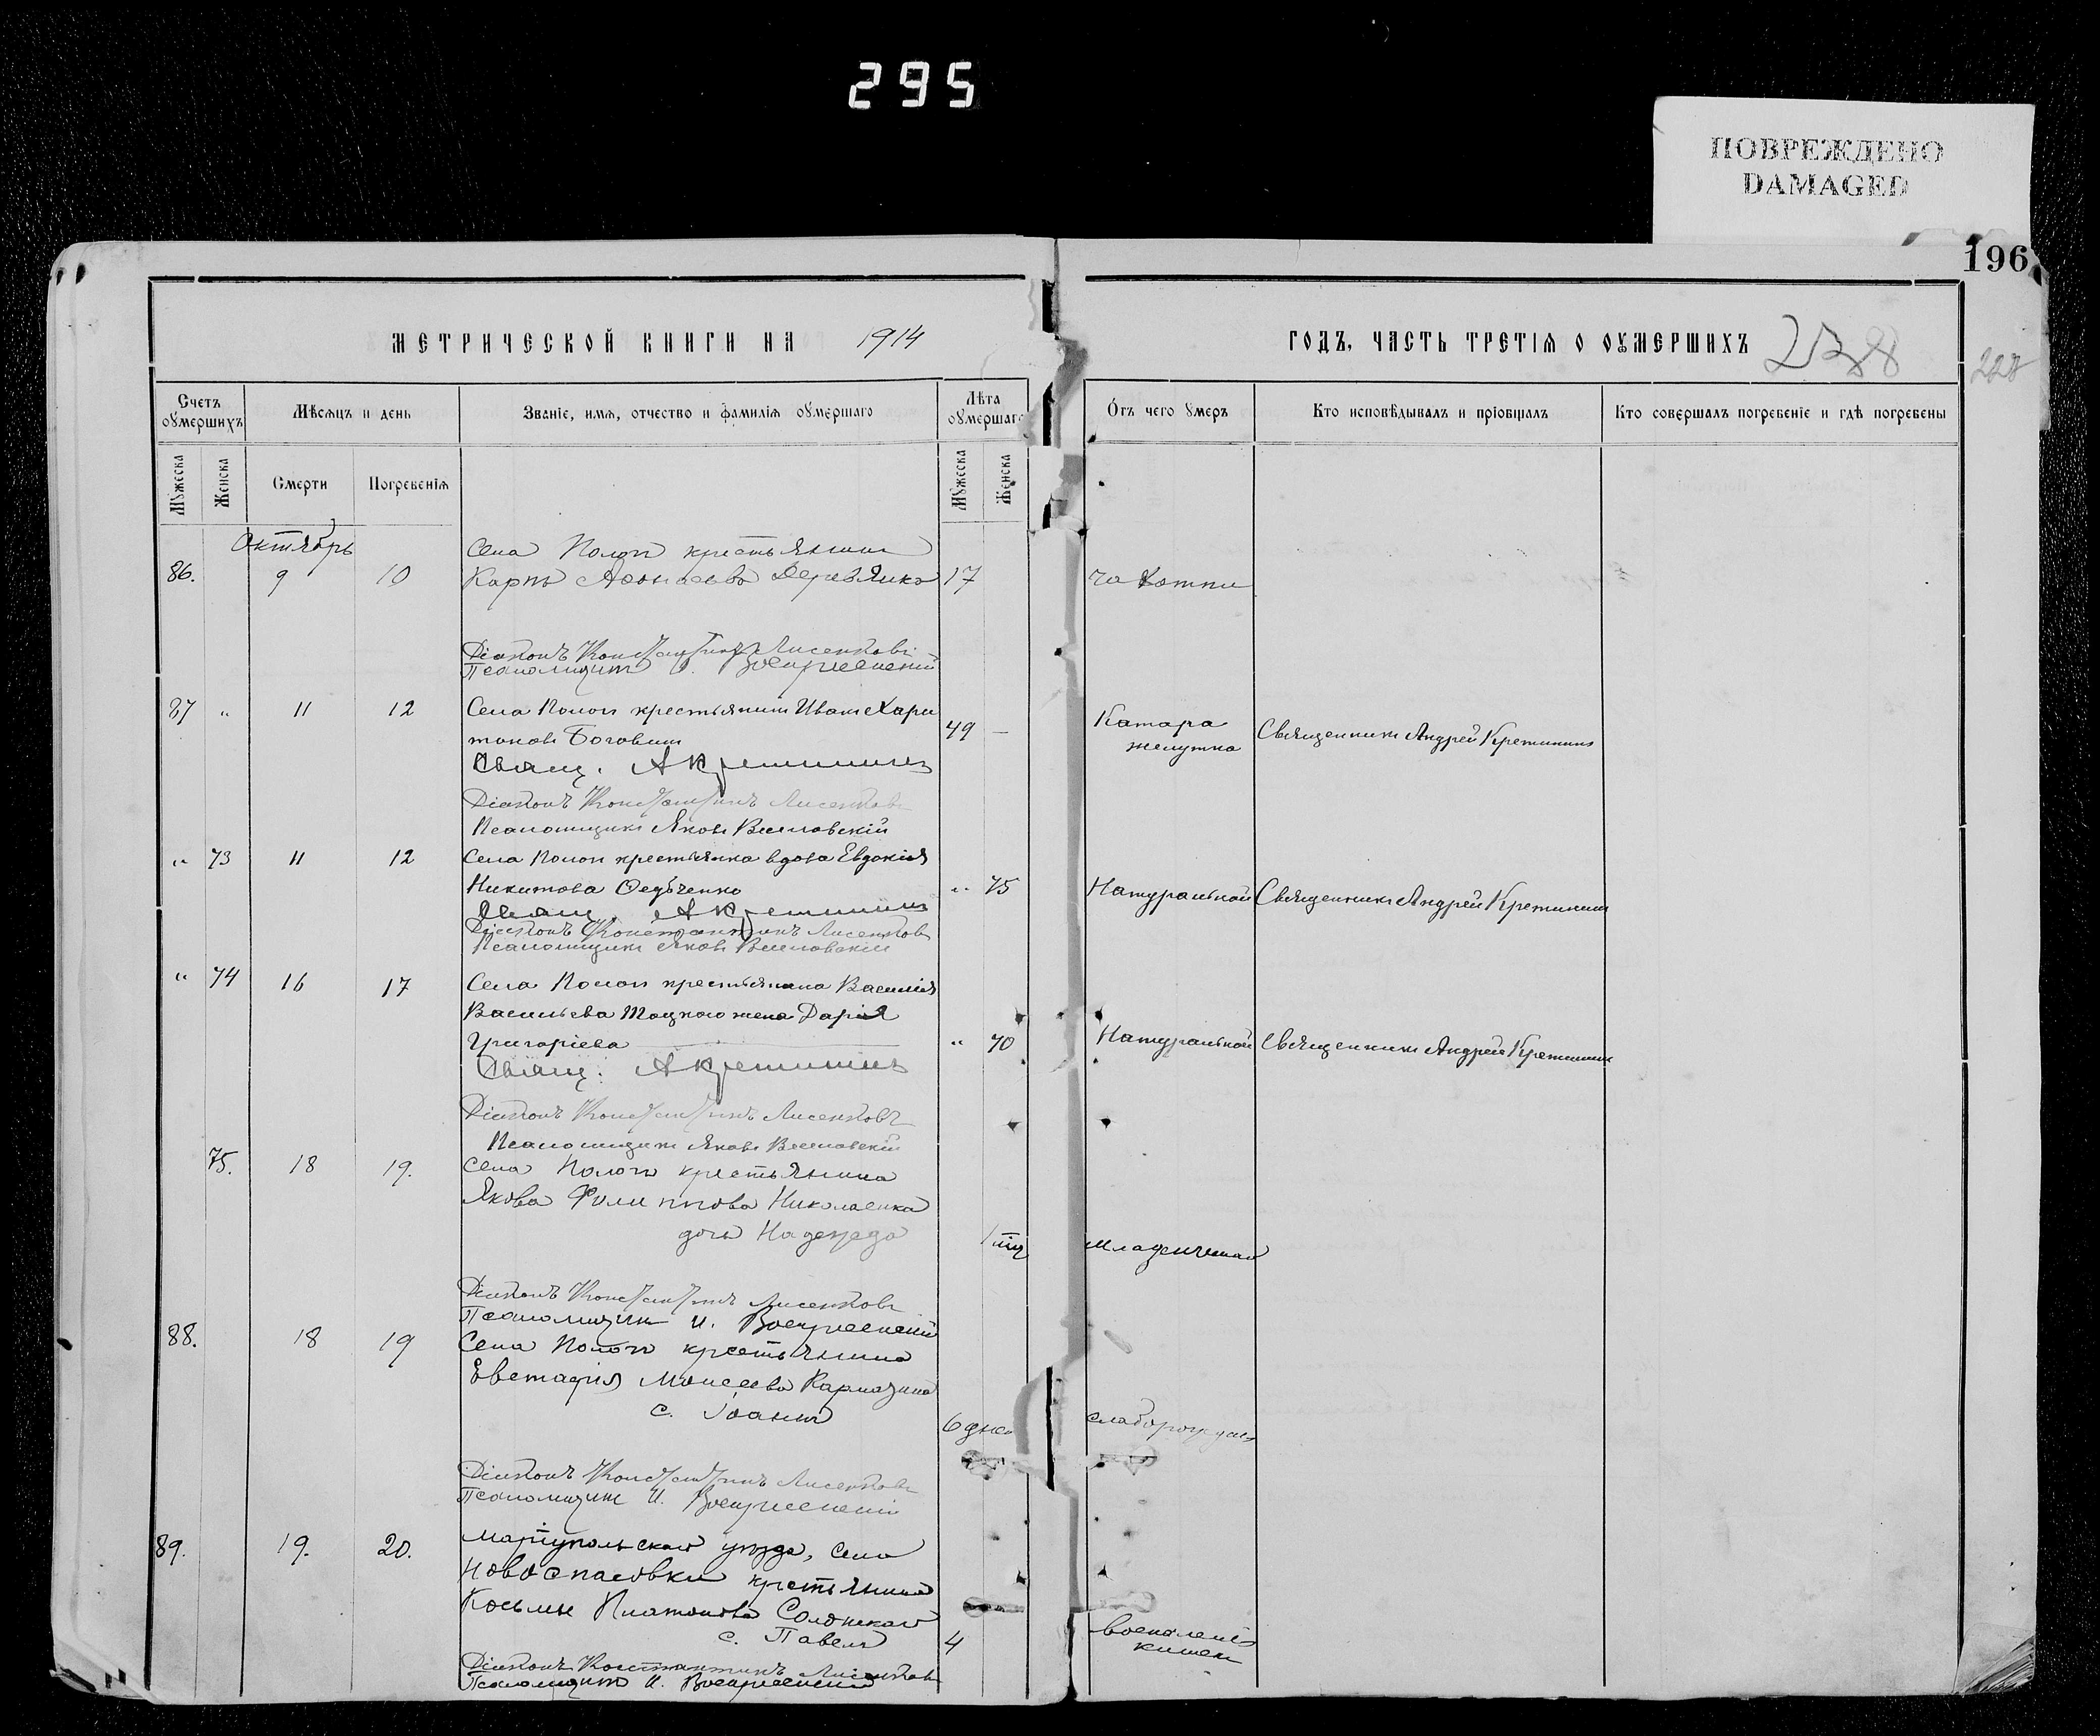 295
ПОВРЕЖДЕНО
DAMAGED
196
МЕТРИЧЕСКОЙ КНИГИ НА 1914
ГОДЪ, ЧАСТЬ ТРЕТІЯ О ОУМЕРШИХЪ 238
228
Счетъ оумершихъ
Мѣсяцъ и день
Званіе, имя, отчество и фамилія оумершаго
Лѣта оумершаго
Отъ чего умеръ
Кто исповѣдывалъ и пріобщалъ
Кто совершалъ погребеніе и гдѣ погребены
Мужеска
Женска
Смерти
Погребенія
Мужеска
Женска
Октябрь
Села Пологъ крестьянинъ
86. 9 10 Карпъ Деревянко 17 чахотки
Діаконъ Константинъ Лисенковъ
Псаломщикъ И. Воскресенскій
87 " 11 12 Села Пологъ крестьянинъ Иванъ Хари
тоновъ Боговинъ 49 — Катара желудка Священникъ Андрей Кретининъ
Свящ. А Кретининъ
Діаконъ Константинъ Лисенковъ
Псаломщикъ Яковъ
" 73 11 12 Села Пологъ крестьянка вдова Евдокія
Никитова Федченко " 75 Натуральной Священникъ Андрей Кретининъ
Свящ. А Кретининъ
Діаконъ Константинъ Лисенковъ
Псаломщикъ Яковъ
" 74 16 17 Села Пологъ крестьянина Василія
Васильева Тоцкого жена Дарія
Григоріева " 70 Натуральной Священникъ Андрей Кретининъ
Свящ. А Кретининъ
Діаконъ Константинъ Лисенковъ
Псаломщикъ Яковъ
75. 18 19. Села Пологъ крестьянина
Якова Филиппова Николаенка
дочь Надежда 1 младенческой
Діаконъ Константинъ Лисенковъ
Псаломщикъ И. Воскресенскій
88. 18 19 Села Пологъ крестьянина
Евстафія Моисеева Кармазина
с. Іоаннъ 6 дней
Діаконъ Константинъ Лисенковъ
Псаломщикъ И. Воскресенскій
89. 19. 20. Маріупольскаго уѣзда, села
Новоспасовки крестьянина
Косьмы Платонова
с. Павелъ 4 воспаленія кишекъ
Діаконъ Константинъ Лисенковъ
Псаломщикъ И. Воскресенскій